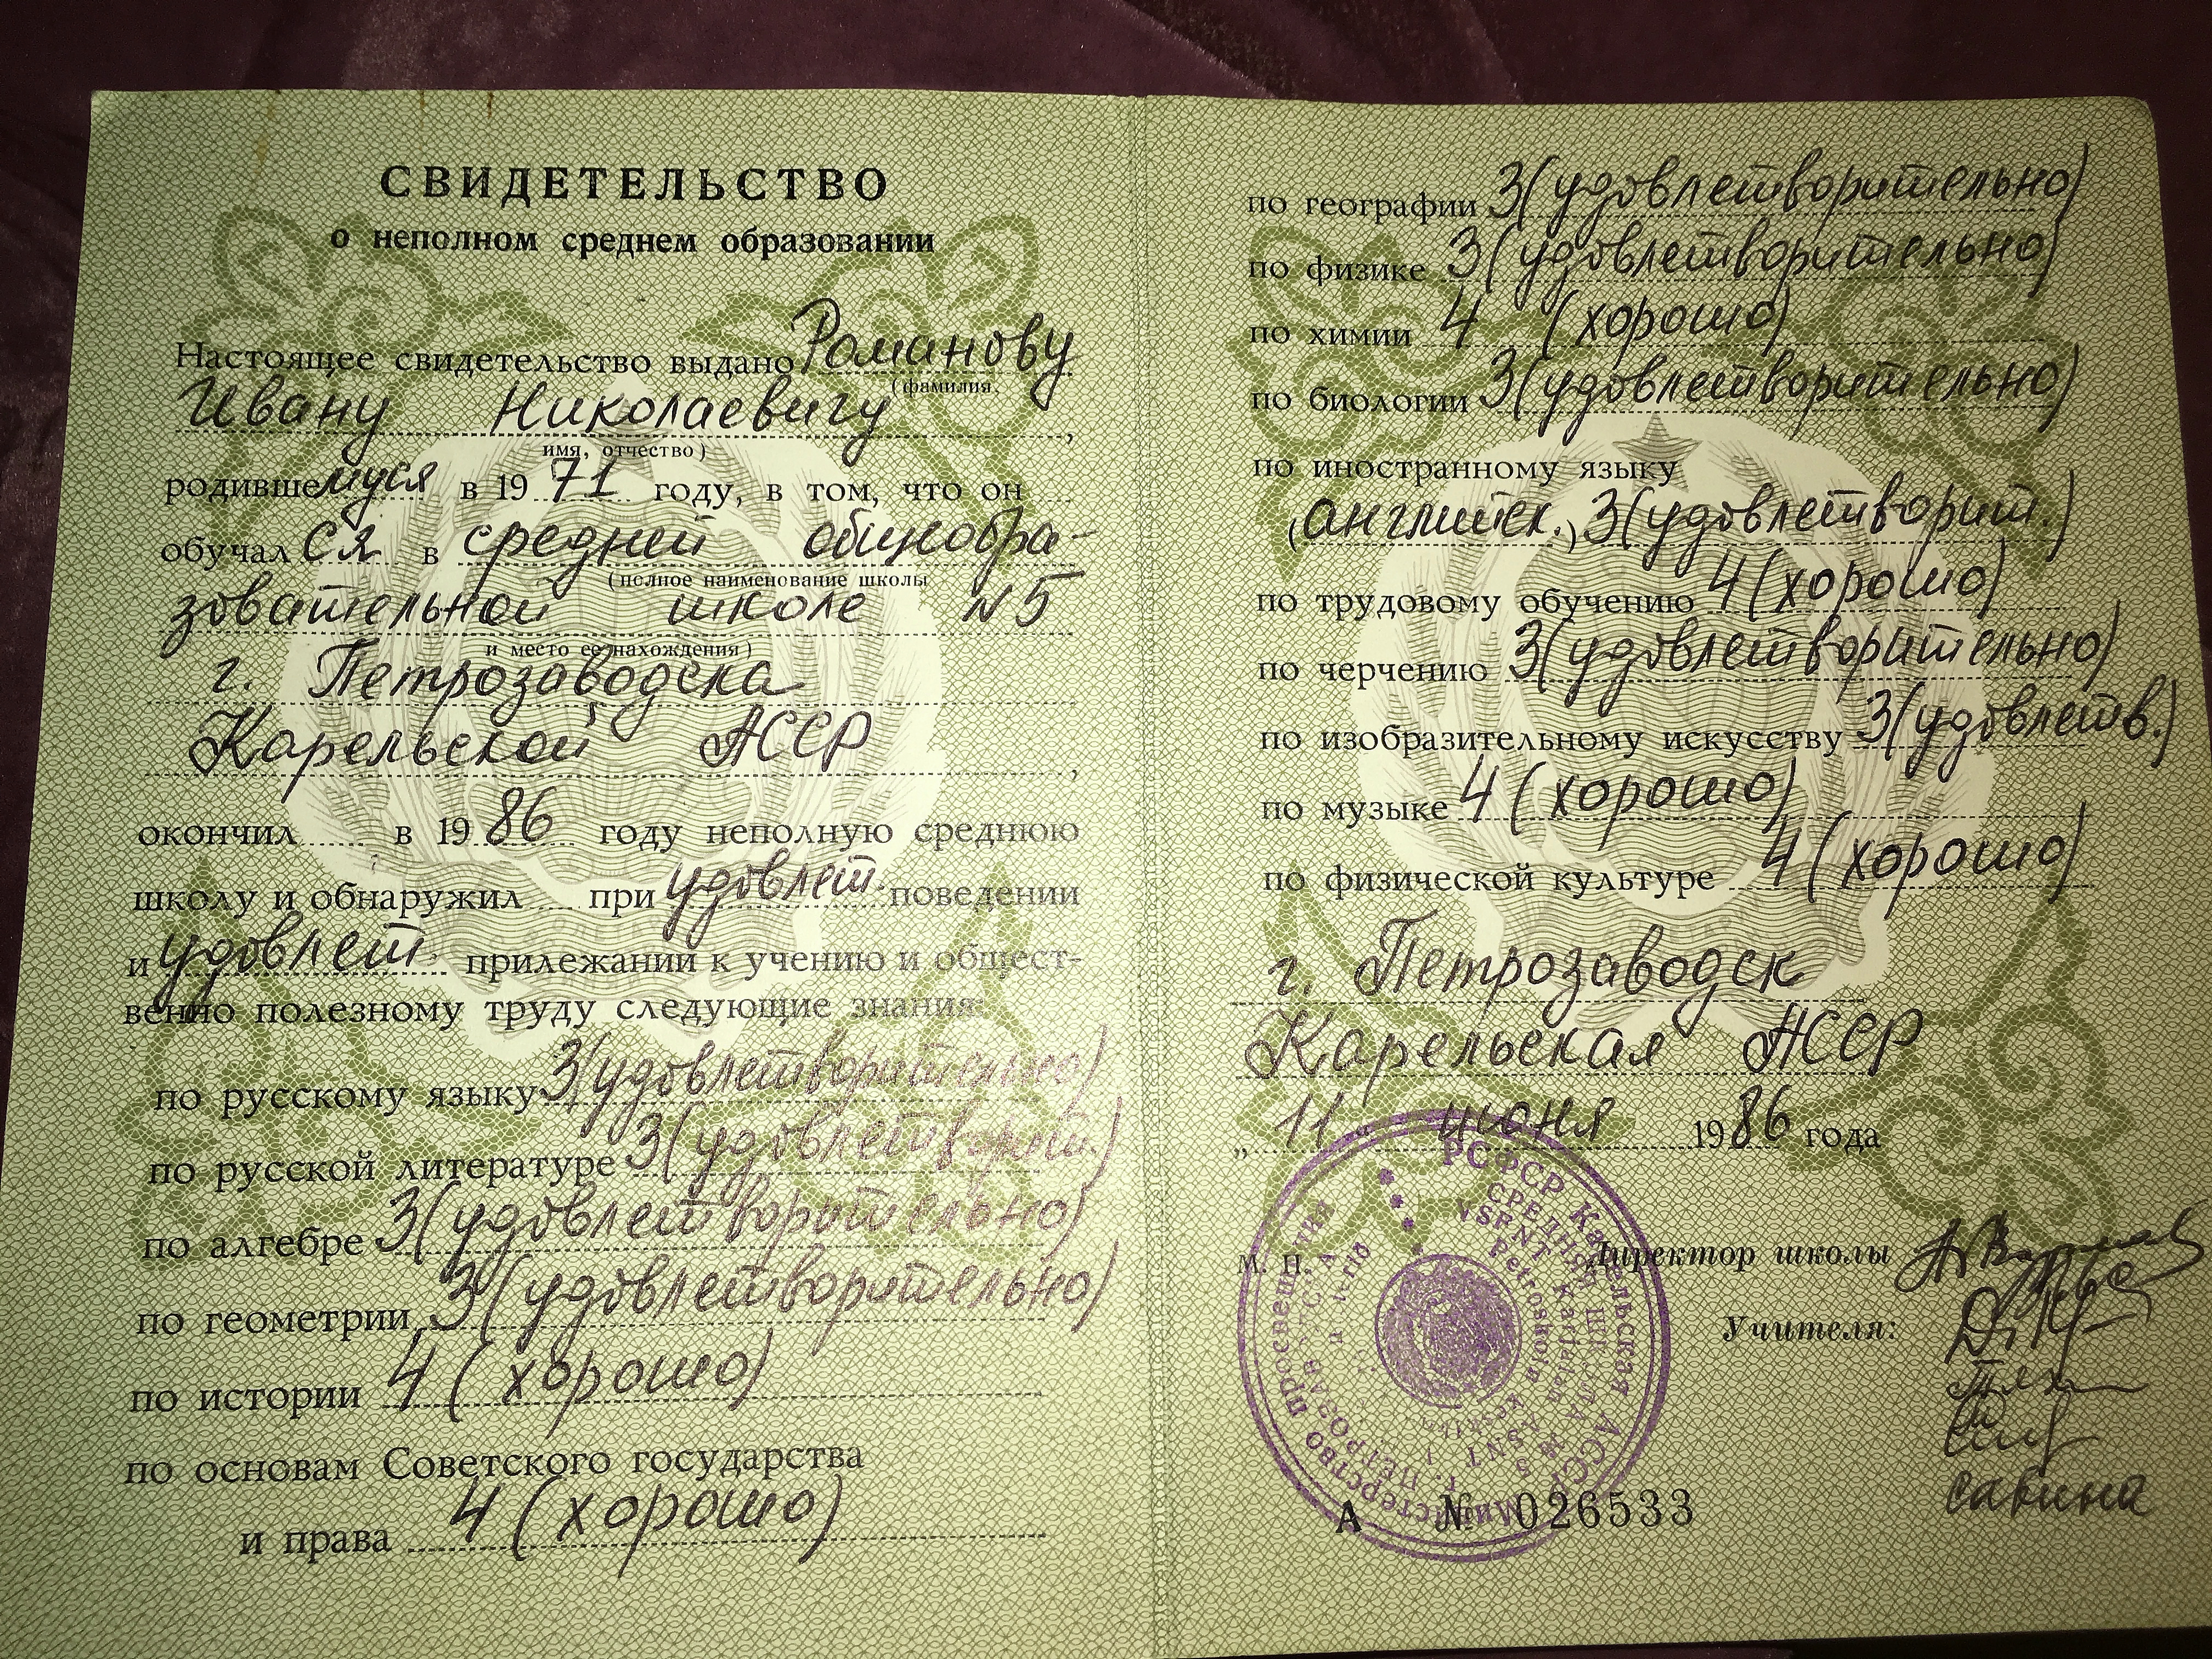 СВИДЕТЕЛЬСТВО
о неполном среднем образовании
Настоящее свидетельство выдано Романову
(фамилия,
Ивану Николаевичу,
имя, отчество)
родившемуся в 1971 году, в том, что он
обучался в средней общеобра-
(полное наименование школы
зовательной школе №5
и место ее нахождения)
г. Петрозаводска
Карельской АССР,
окончил в 1986 году неполную среднюю
школу и обнаружил при удовлет. поведении
и удовлет. прилежании к учению и общест-
венно полезному труду следующие знания:
по русскому языку 3(удовлетворительно)
по русской литературе 3(удовлетворит.)
по алгебре 3(удовлетворительно)
по геометрии 3(удовлетворительно)
по истории 4 (хорошо)
по основам Советского государства
и права 4 (хорошо)
по географии 3(удовлетворительно)
по физике 3(удовлетворительно)
по химии 4 (хорошо)
по биологии 3(удовлетворительно)
по иностранному языку
(английск.) 3(удовлетворит.)
по трудовому обучению 4(хорошо)
по черчению 3(удовлетворительно)
по изобразительному искусству 3(удовлетв.)
по музыке 4 (хорошо)
по физической культуре 4 (хорошо)
г. Петрозаводск
Карельская АССР
„11 июня 1986 года
М. П. Директор школы
Учителя:
РСФСР Карельская АССР Министерство просвещения
СРЕДНЯЯ ШКОЛА № 5 г. ПЕТРОЗАВ
А № 026533